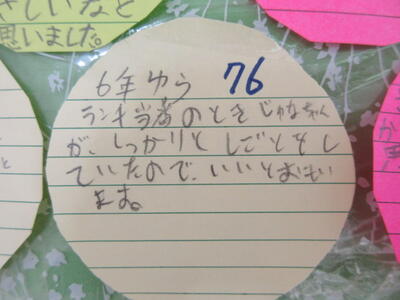 さしいなと
思いました。
6年ゆう 76
ランチ当番のときじゅなちゃん
が、しっかりとしごとをし
ていたので、いいとおもい
ます。